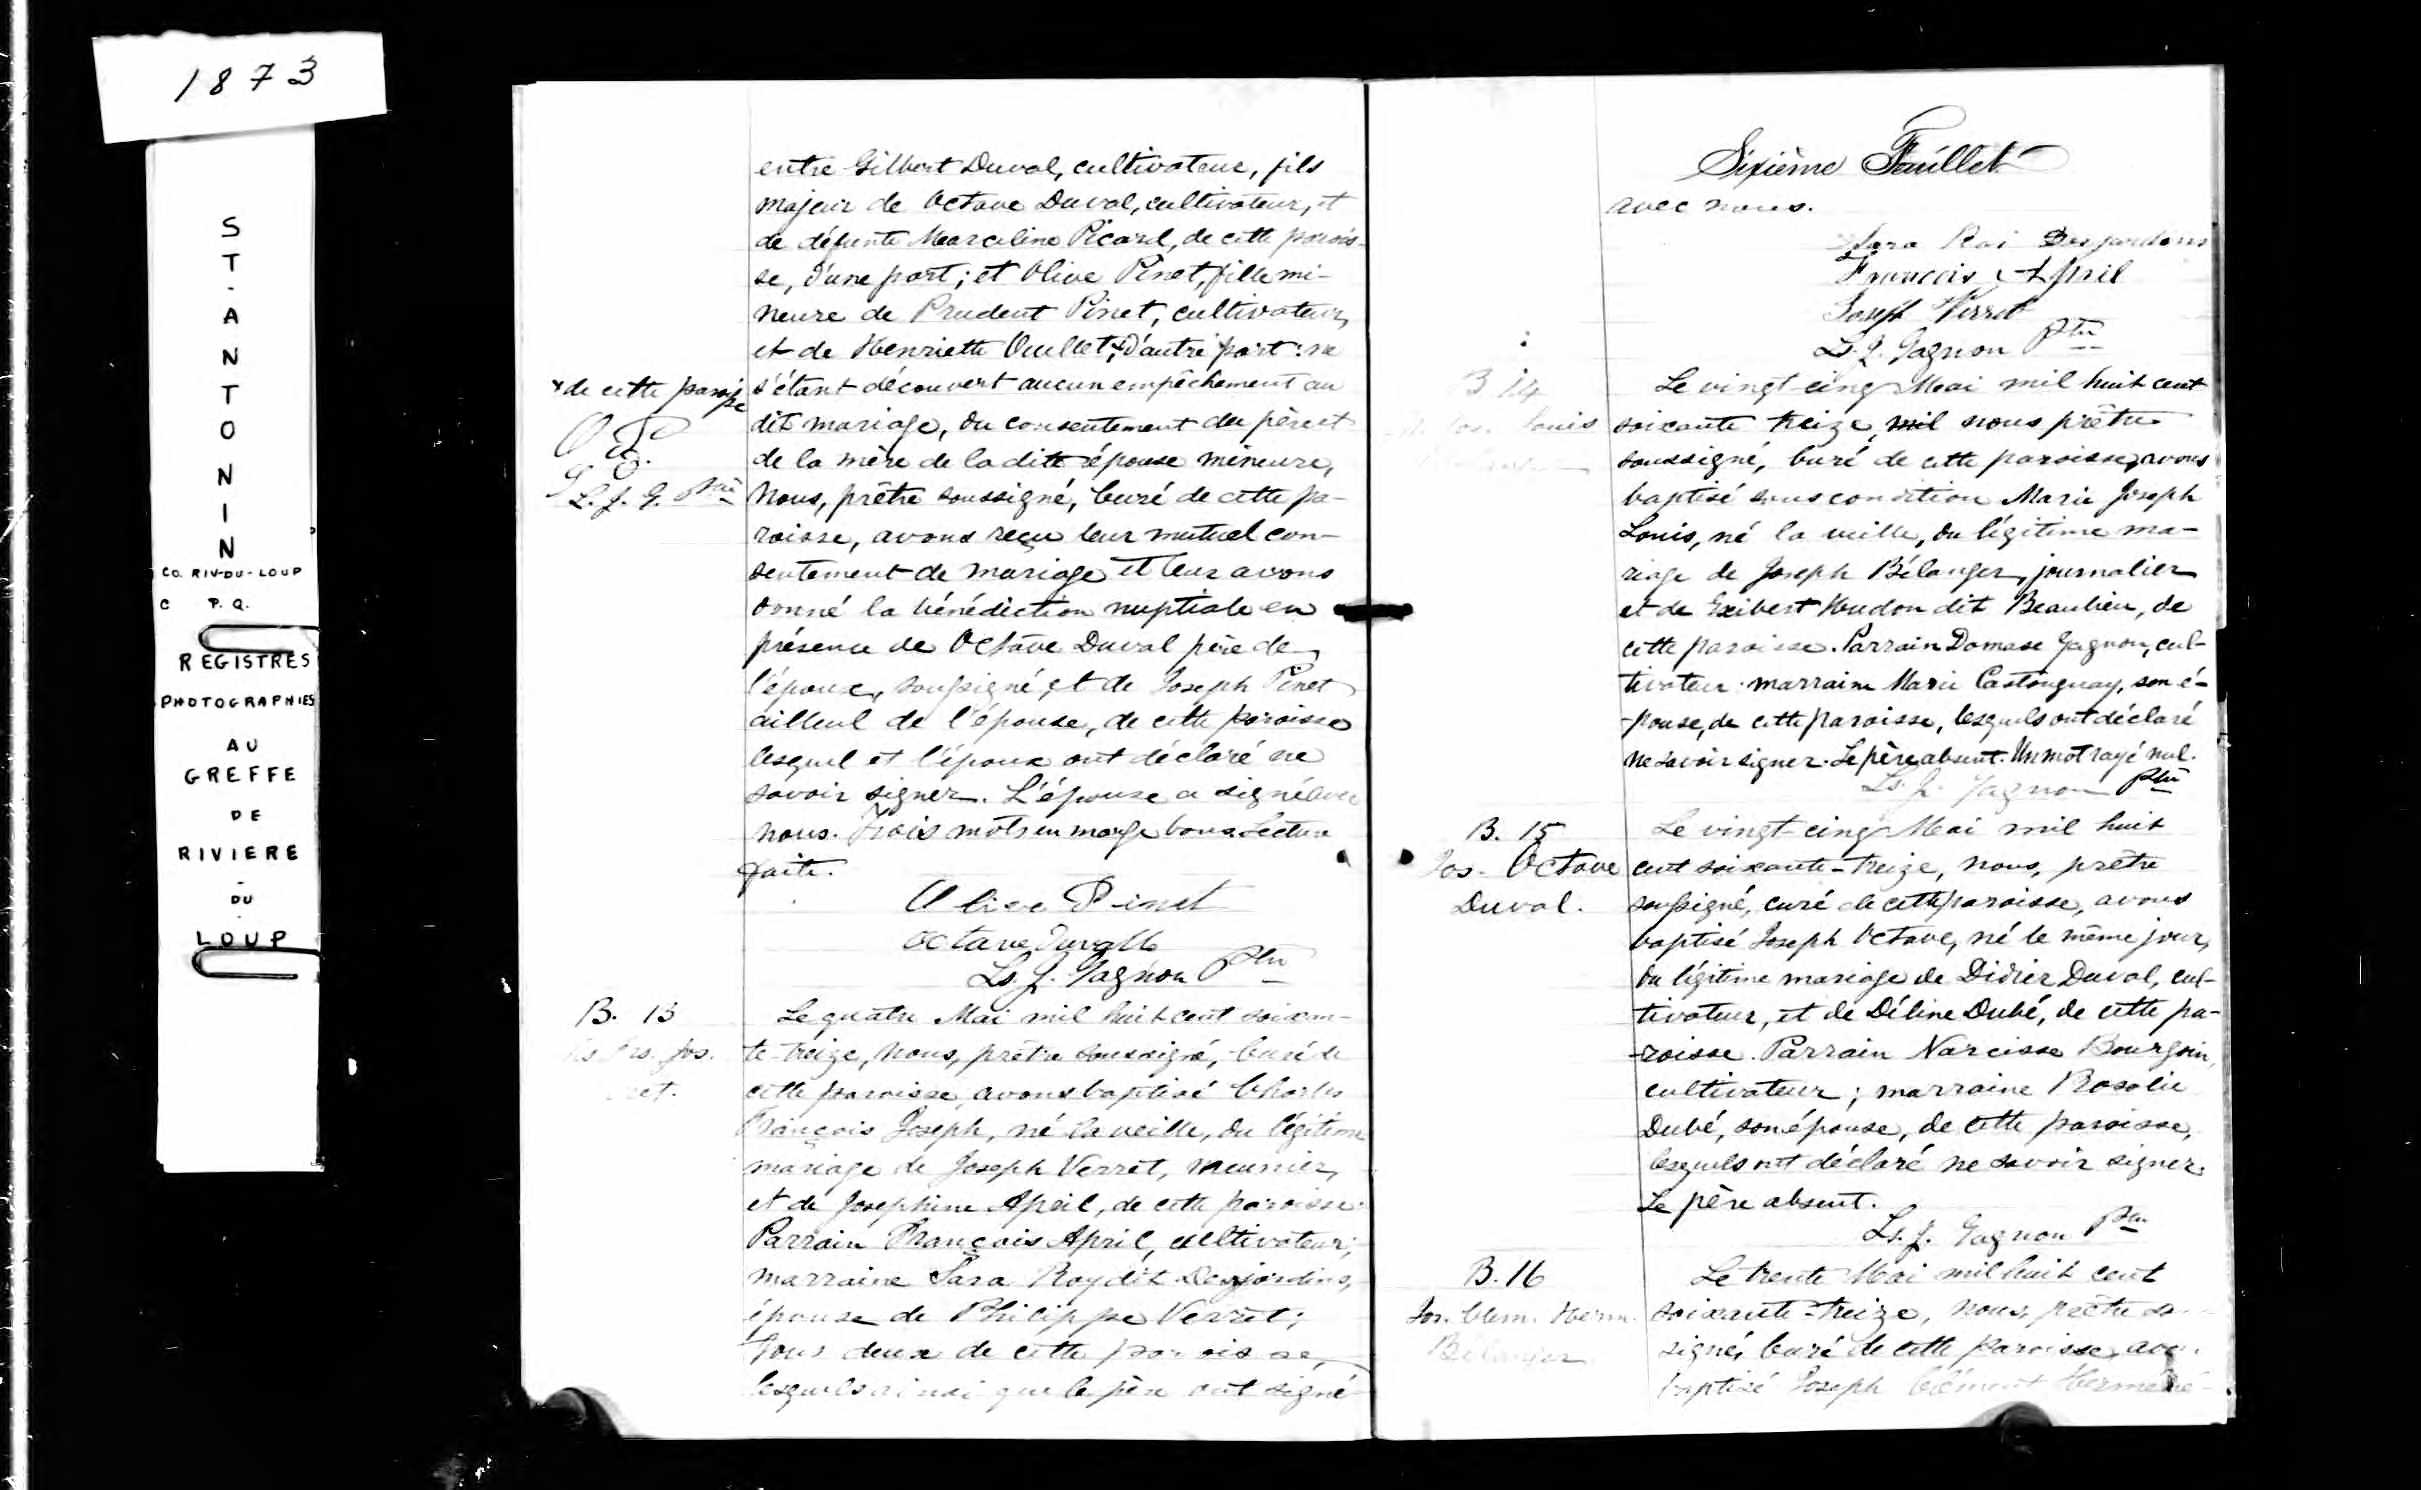 1873
ST. ANTONIN
CO. RIV-DU-LOUP
C P.Q.
REGISTRES
PHOTOGRAPHIES
AU
GREFFE
DE
RIVIERE
-
DU
LOUP
entre Gilbert Duval, cultivateur, fils
majeur de Octave Duval, cultivateur, et
de défunte Marceline Picard, de cette parois-
se, d'une part; et Olive Pinet, fille mi-
neure de Prudent Pinet, cultivateur,
et de Henriette Ouellet,* d'autre part: ne
*de cette paroisse
O. P.
O. D.
L. J. G. Ptre
s'étant découvert aucun empêchement au
dit mariage, du consentement du père et
de la mère de la dite épouse mineure,
Nous, prêtre soussigné, Curé de cette pa-
roisse, avons reçu leur mutuel con-
sentement de mariage et leur avons
donné la bénédiction nuptiale en
présence de Octave Duval père de
l'époux, soussigné, et de Joseph Pinet
ailleul de l'épouse, de cette paroisse
lesquel et l'époux ont déclaré ne
savoir signer. L'épouse a signé avec
nous. Trois mots en marge bons. Lecture
faite.
Olive Pinet
Octave Duvall
Ls. J. Gagnon Ptre
B. 13
Frs. Jos.
Le quatre Mai mil huit cent soixan-
te-treize, Nous, prêtre soussigné, Curé de
cette paroisse, avons baptisé Charles
François Joseph, né la veille, du légitime
mariage de Joseph Verret, meunier,
et de Josephine April, de cette paroisse.
Parrain François April, cultivateur;
marraine Sara Roy dit Desjardins,
épouse de Philippe Verret;
Tous deux de cette paroisse,
lesquels ainsi que le père ont signé
Sixième Feuillet
avec nous.
Sara Roi Desjardens
Francois April
Joseph Verret
Ls. J. Gagnon Ptre
B 14
Jos. Louis
Le vingt-cinq Mai mil huit cent
soixante treize, mil nous prêtre
soussigné, Curé de cette paroisse, avons
baptisé sous condition Marie Joseph
Louis, né la veille, du légitime ma-
riage de Joseph Bélanger, journalier
et de Exibert Hudon dit Beaulieu, de
cette paroisse. Parrain Damase Gagnon, cul-
tivateur. marraine Marie Castonguay, son é-
-pouse, de cette paroisse, lesquels ont déclaré
ne savoir signer. Le père absent. Un mot rayé nul.
Ls. J. Gagnon Ptre
B. 15
Jos. Octave
Duval.
Le vingt-cinq Mai mil huit
cent soixante-treize, nous, prêtre
soussigné, curé de cette paroisse, avons
baptisé Joseph Octave, né le même jour,
du légitime mariage de Didier Duval, cul-
tivateur, et de Déline Dubé, de cette pa-
-roisse. Parrain Narcisse Bourgoin,
cultivateur; marraine Rosalie
Dubé, son épouse, de cette paroisse,
lesquels ont déclaré ne savoir signer.
Le père absent.
Ls. J. Gagnon Ptre
B. 16
Jos. Clem. Herm.
Bélanger
Le trente Mai mil huit cent
soixante-treize, nous, prêtre
signé, Curé de cette paroisse,
baptisé Joseph Clément Herméné-